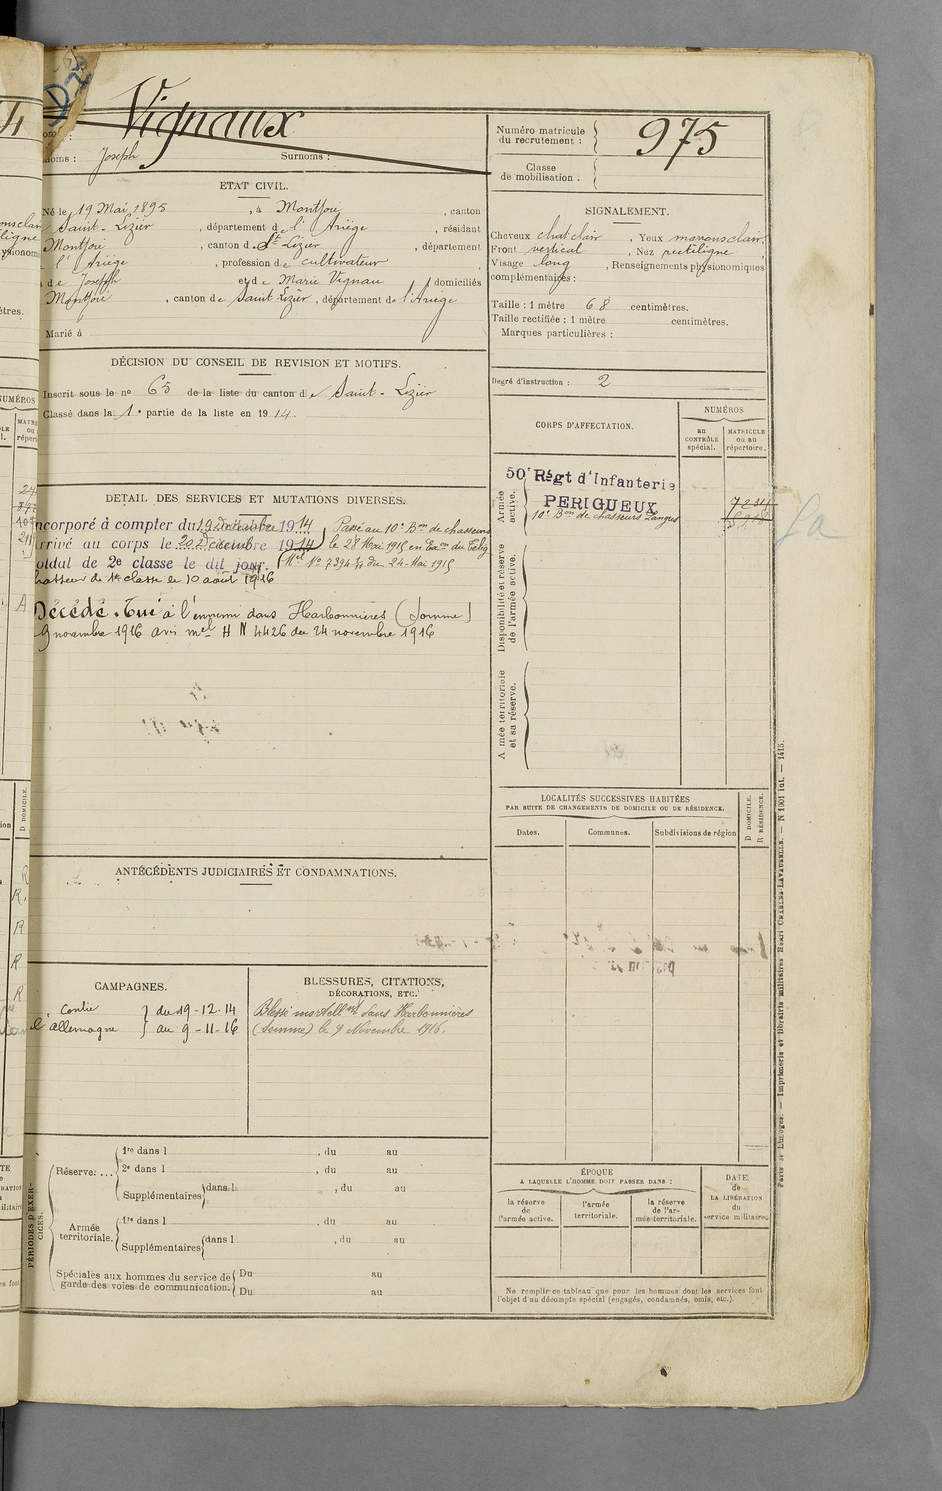 Vignaux
Joseph
Surnoms :
Numéro matricule
du recrutement :
975
Classe
de mobilisation :
ETAT CIVIL.
Né le 19 Mai 1895, à Montjoi, canton
Saint-Lizier, département de l'Ariège, résidant
Montjoi, canton de St Lizier, département
l'Ariège, profession de cultivateur
de Joseph et de Marie Vignau, domiciliés
Montjoi, canton de Saint-Lizier, département de l'Ariège
Marié à
SIGNALEMENT.
Cheveux chat clair, Yeux marrons clair,
Front vertical, Nez rectiligne,
Visage long, Renseignements physionomiques
complémentaires :
Taille : 1 mètre 68 centimètres.
Taille rectifiée : 1 mètre centimètres.
Marques particulières :
DÉCISION DU CONSEIL DE REVISION ET MOTIFS.
Inscrit sous le no 65 de la liste du canton de Saint-Lizier
Classé dans la 1e partie de la liste en 1914.
Degré d'instruction : 2
CORPS D'AFFECTATION.
NUMÉROS
au
CONTRÔLE
spécial.
MATRICULE
ou au
répertoire.
Armée
active.
50e Régt d'Infanterie
PERIGUEUX
10e Bon de chasseurs
Disponibilité et réserve
de l'armée active.
A mée territoriale
et sa réserve.
DETAIL DES SERVICES ET MUTATIONS DIVERSES.
ncorporé à compter du 19 décembre 1914
rrivé au corps le 20 Décembre 1914
oldat de 2e classe le dit jour.
Passé au 10e Bon de chasseurs
le 28 Mai 1915 en Exon du Télég
Mel No 7394 du 24 Mai 1915
hasseur de 1re classe le 10 août 1916
Décédé. Tué à l'ennemi dans Harbonnières (Somme)
9 novembre 1916 avis mel H N 4426 du 24 novembre 1916
LOCALITÉS SUCCESSIVES HABITÉES
PAR SUITE DE CHANGEMENTS DE DOMICILE OU DE RÉSIDENCE.
Dates.
Communes.
Subdivisions de région
D DOMICILE.
R RÉSIDENCE.
ANTÉCÉDENTS JUDICIAIRES ET CONDAMNATIONS.
CAMPAGNES.
Contre
l'allemagne
du 19-12-14
au 9-11-16
BLESSURES, CITATIONS,
DÉCORATIONS, ETC.
Blessé mortellent dans Harbonnières
(Somme) le 9 Novembre 1916.
PÉRIODES D'EXER-
CICES.
Réserve....
1re dans l , du au
2e dans l , du au
Supplémentaires dans l , du au
Armée
territoriale.
1re dans l , du au
Supplémentaires dans l , du au
Spéciales aux hommes du service de
garde des voies de communication.
Du au
Du au
ÉPOQUE
A LAQUELLE L'HOMME DOIT PASSER DANS :
la réserve
de
l'armée active.
l'armée
territoriale.
la réserve
de l'ar-
mée territoriale.
DATE
de
LA LIBÉRATION
du
service militaire.
Ne remplir ce tableau que pour les hommes dont les services font
l'objet d'un décompte spécial (engagés, condamnés, omis, etc.).
Paris et Limoges. — Imprimerie et librairie militaires Henri CHARLES-LAVAUZELLE. — N 1001 int. — 1415.